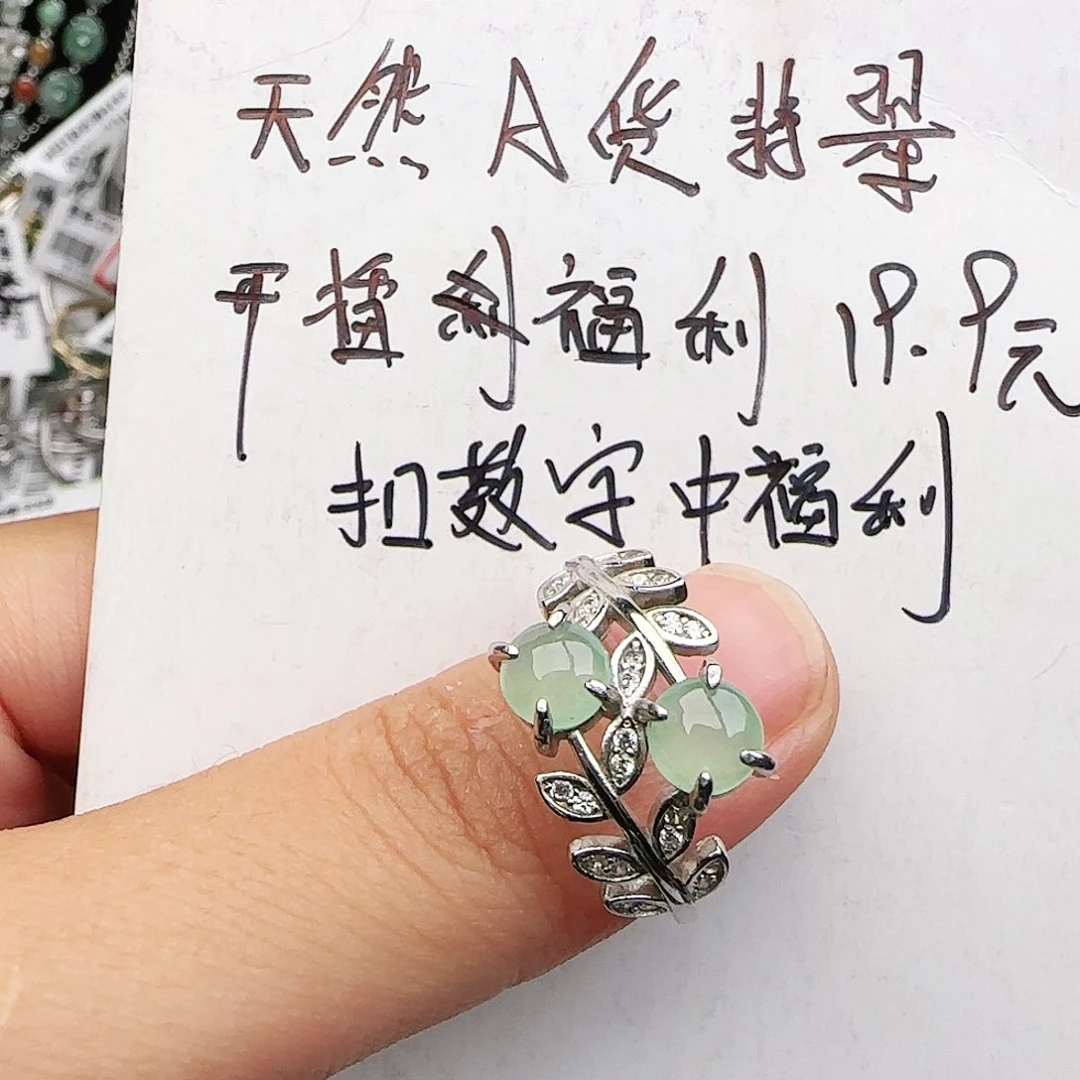 天然A货翡翠
开播福利19.9元
扣数字中福利